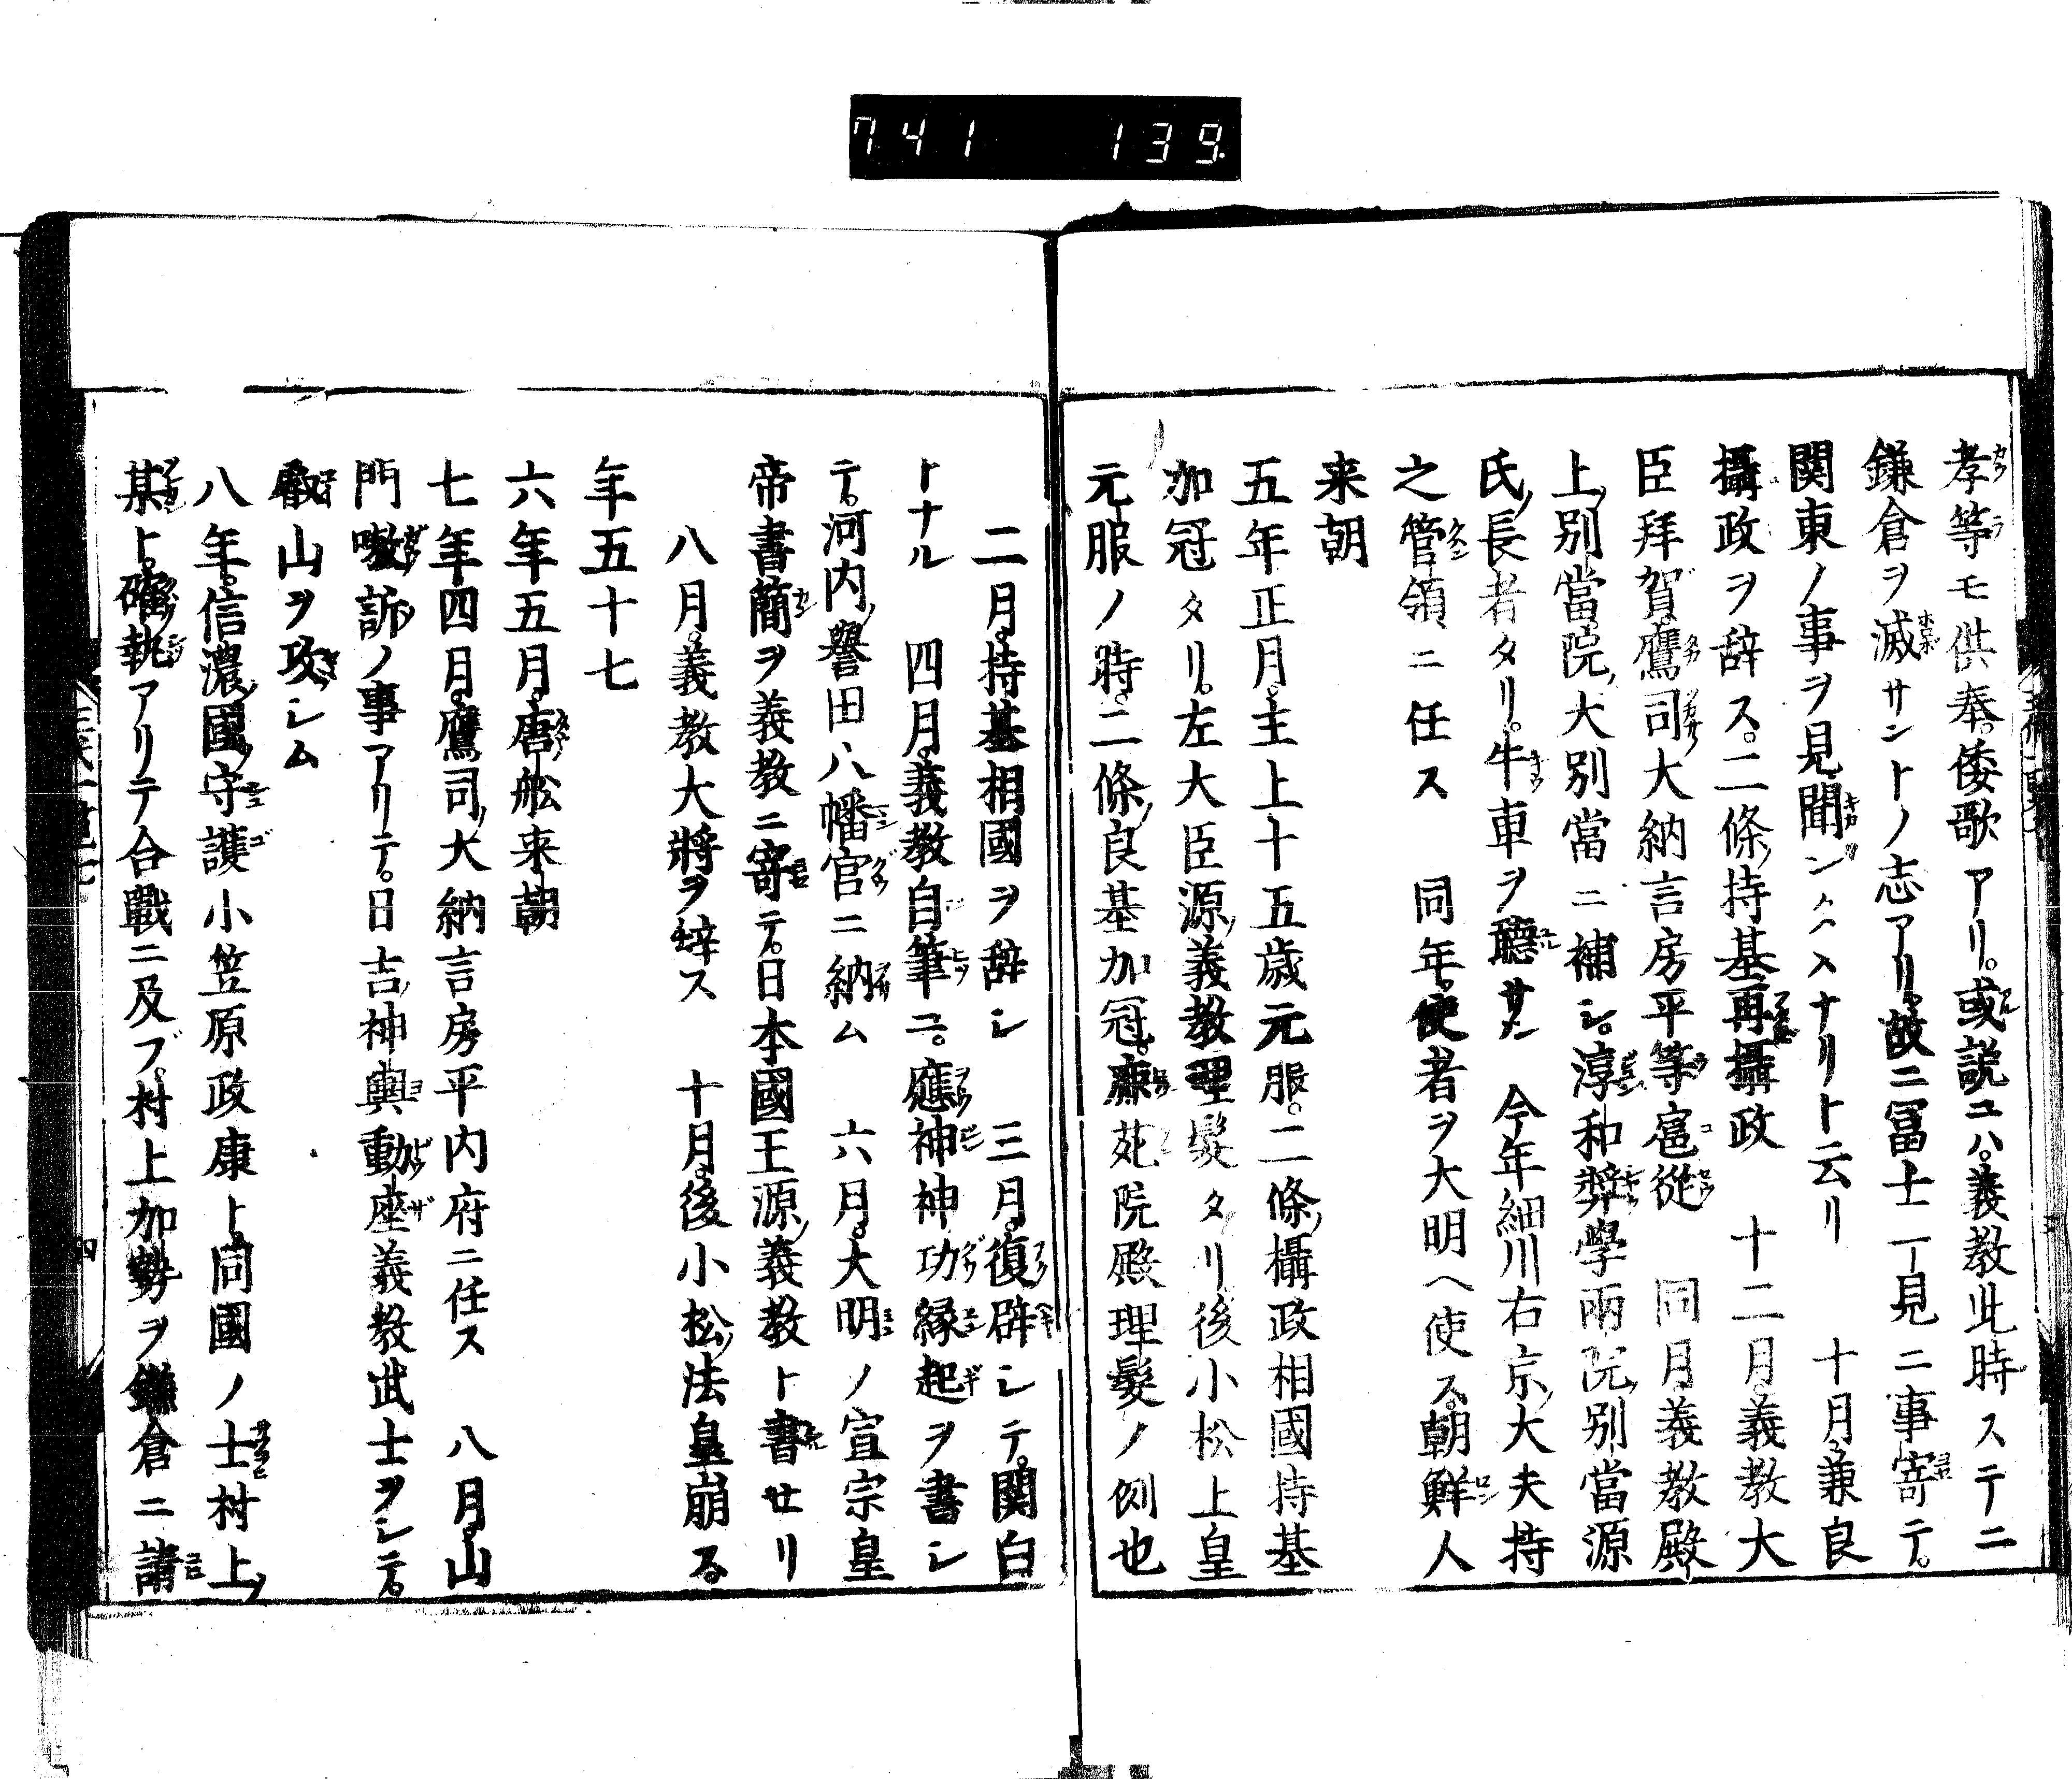 741 139.
孝等モ供奉。倭歌アリ。或説ニハ。義教此時ステニ
鎌倉ヲ滅サントノ志アリ。故ニ冨士一見ニ事寄テ。
関東ノ事ヲ見聞ンタメナリト云リ　十月。兼良
攝政ヲ辞ス。二條持基再攝政　十二月。義教大
臣拜賀。鷹司大納言房平等扈從　同月。義教殿
上別當。院大別當ニ補シ。淳和奬學兩院別當源
氏長者タリ。牛車ヲ聽サル　今年細川右京大夫持
之管領ニ任ス　同年。使者ヲ大明ヘ使ス。朝鮮人
来朝
五年正月。主上十五歳元服。二條攝政相國持基
加冠タリ。左大臣源義教理髮タリ後小松上皇
元服ノ時。二條良基加冠。鹿苑院殿理髮ノ例也
二月。持基相國ヲ辞シ　三月。復辟シテ。関白
トナル　四月。義教自筆ニ。應神神功縁起ヲ書シ
テ。河内譽田八幡宮ニ納ム　六月。大明ノ宣宗皇
帝書簡ヲ義教ニ寄テ。日本國王源義教ト書セリ
八月。義教大將ヲ辞ス　十月。後小松法皇崩ス。
年五十七
六年五月。唐舩来朝
七年四月。鷹司大納言房平内府ニ任ス　八月。山
門嗷訴ノ事アリテ。日吉神輿動座義教武士ヲシテ。
叡山ヲ攻シム
八年。信濃國守護小笠原政康ト。同國ノ士村上
某ト。確執アリテ合戰ニ及ブ。村上加勢ヲ鎌倉ニ請
四